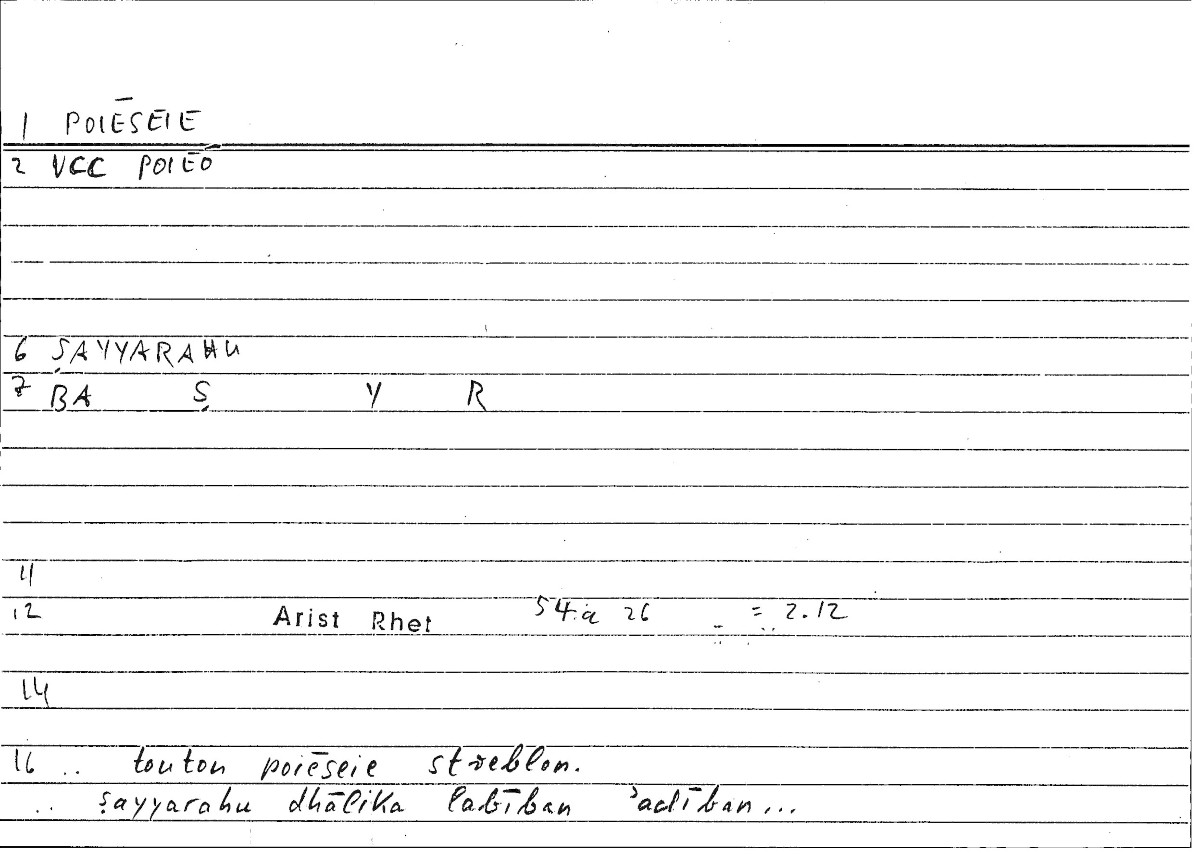 1 POIĒSEIE
2 VCC POIEŌ
6 ṢAYYARAHU
7 ḄA Ṣ Y R
11
12 Arist Rhet 54.a 26 = 2.12
14
16 .. touton poiēseie streblon.
.. ṣayyarahu dhālika labīban ʾadīban...